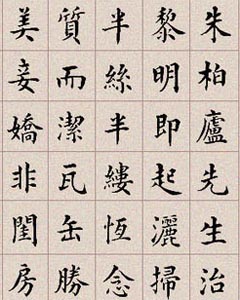 朱柏廬先生治
黎明即起灑掃
半絲半縷恆念
質而潔瓦缶勝
美妾嬌非閨房